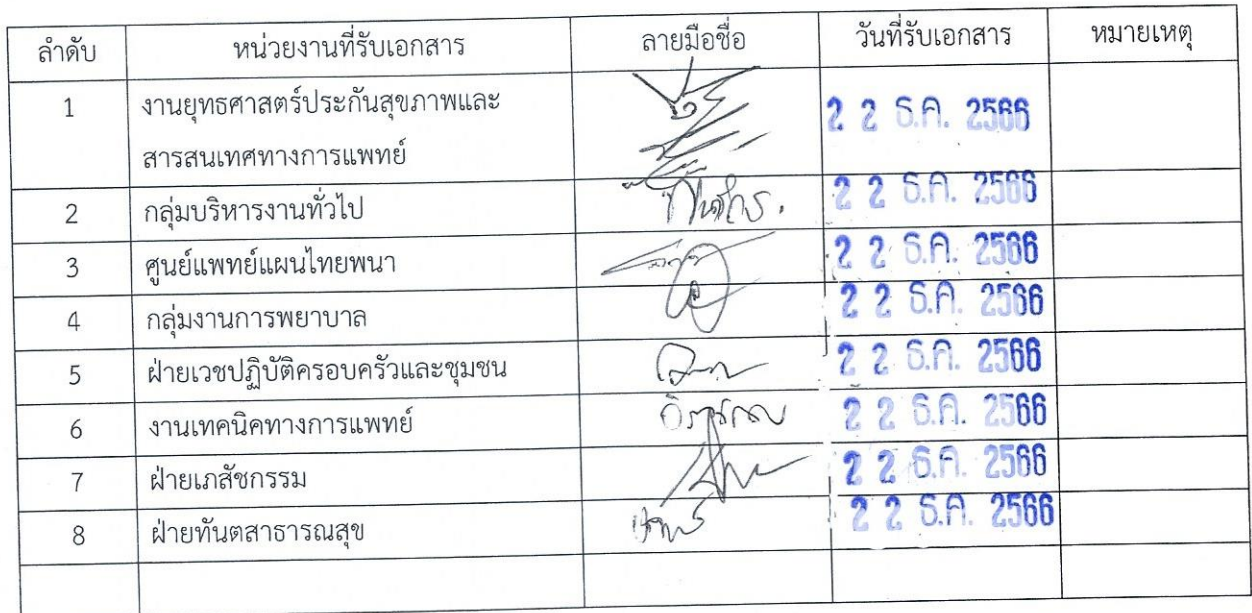 ลำดับ หน่วยงานที่รับเอกสาร ลายมือชื่อ วันที่รับเอกสาร หมายเหตุ
1 งานยุทธศาสตร์ประกันสุขภาพและ 2 2 ธ.ค. 2566
สารสนเทศทางการแพทย์
2 กลุ่มบริหารงานทั่วไป 2 2 ธ.ค. 2566
3 ศูนย์แพทย์แผนไทยพนา 2 2 ธ.ค. 2566
4 กลุ่มงานการพยาบาล 2 2 ธ.ค. 2566
5 ฝ่ายเวชปฏิบัติครอบครัวและชุมชน 2 2 ธ.ค. 2566
6 งานเทคนิคทางการแพทย์ 2 2 ธ.ค. 2566
7 ฝ่ายเภสัชกรรม 2 2 ธ.ค. 2566
8 ฝ่ายทันตสาธารณสุข 2 2 ธ.ค. 2566